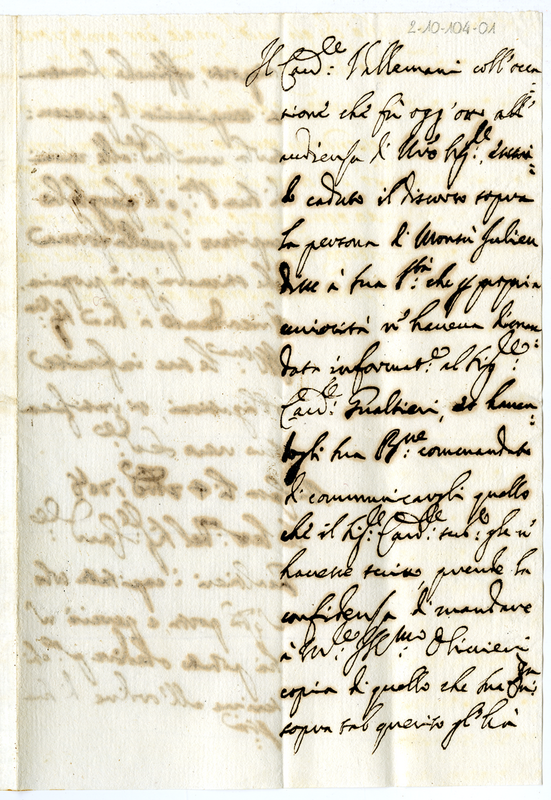 2-10-104-01
Il Card:le Vallemani coll'occa=
sione che fù oggi all'
audienza di N'ro Sig:re, essen=
do caduto il discorso sopra
la persona di Monsù Julien
disse à Sua S:tà che p propria
curiosità n'haveva diman=
data informat:e al Sig:re
Card:le Gualtieri, et haven=
dogli Sua B:ne commandato
di communicargli quello
che il Sig:re Card:le sud:o gle n'
havesse scritto, prende la
confidenza di mandare
à M:re Ill:mo Olivieri
copia di quello che Sua
sopra tal quesito gl'hà